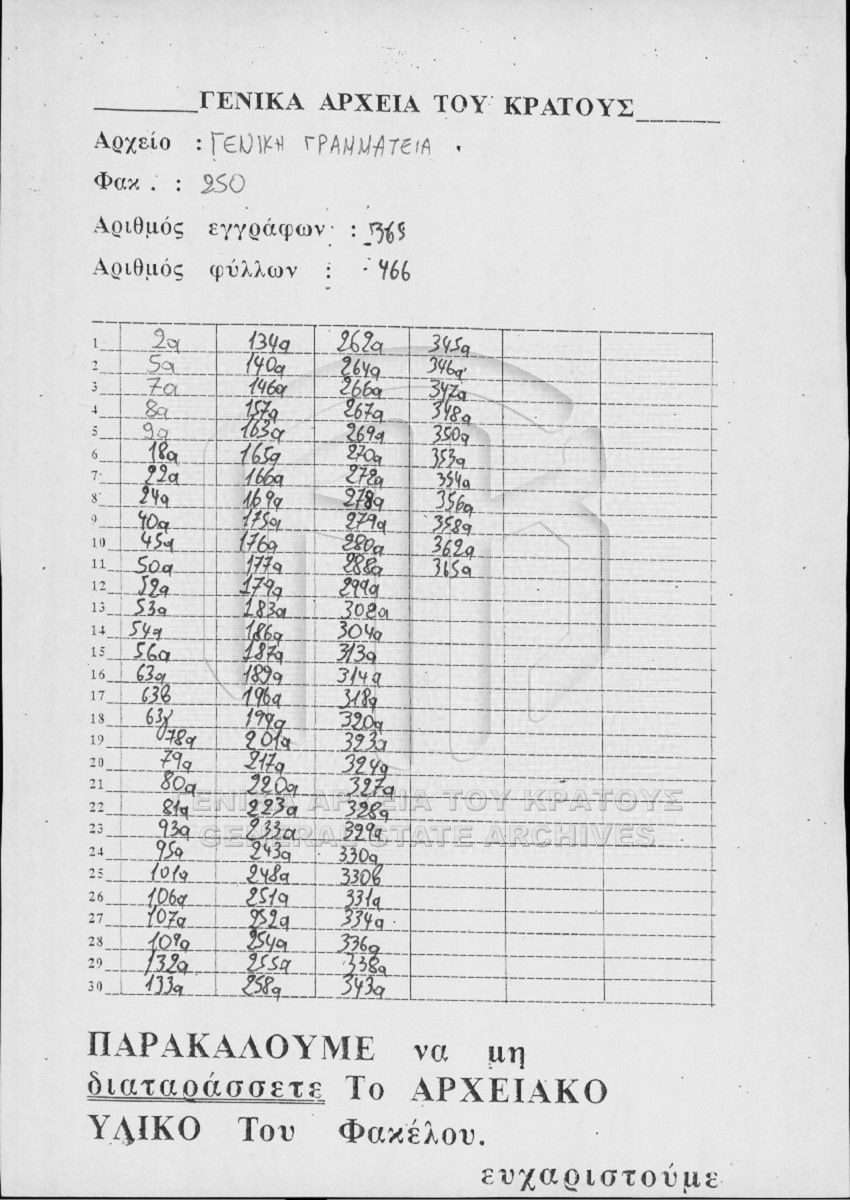 ΓΕΝΙΚΑ ΑΡΧΕΙΑ ΤΟΥ ΚΡΑΤΟΥΣ
Αρχείο : ΓΕΝΙΚΗ ΓΡΑΜΜΑΤΕΙΑ .
Φακ . : 250
Αριθμός εγγράφων : 365
Αριθμός φύλλων : 466
1 2α 134α 262α 345α
2 5α 140α 264α 346α
3 7α 146α 266α 347α
4 8α 157α 267α 348α
5 9α 163α 269α 350α
6 18α 165α 270α 353α
7 22α 166α 272α 354α
8 24α 169α 278α 356α
9 40α 175α 279α 358α
10 45α 176α 280α 362α
11 50α 177α 288α 365α
12 52α 179α 299α
13 53α 183α 302α
14 54α 186α 304α
15 56α 187α 313α
16 63α 189α 314α
17 63β 196α 318α
18 63γ 199α 320α
19 78α 201α 323α
20 79α 217α 324α
21 80α 220α 327α
22 81α 223α 328α
23 93α 233α 329α
24 95α 243α 330α
25 101α 248α 330β
26 106α 251α 331α
27 107α 252α 334α
28 109α 254α 336α
29 132α 255α 338α
30 133α 258α 343α
ΓΕΝΙΚΑ ΑΡΧΕΙΑ ΤΟΥ ΚΡΑΤΟΥΣ
GENERAL STATE ARCHIVES
ΠΑΡΑΚΑΛΟΥΜΕ να μη
διαταράσσετε Το ΑΡΧΕΙΑΚΟ
ΥΛΙΚΟ Του Φακέλου.
ευχαριστούμε